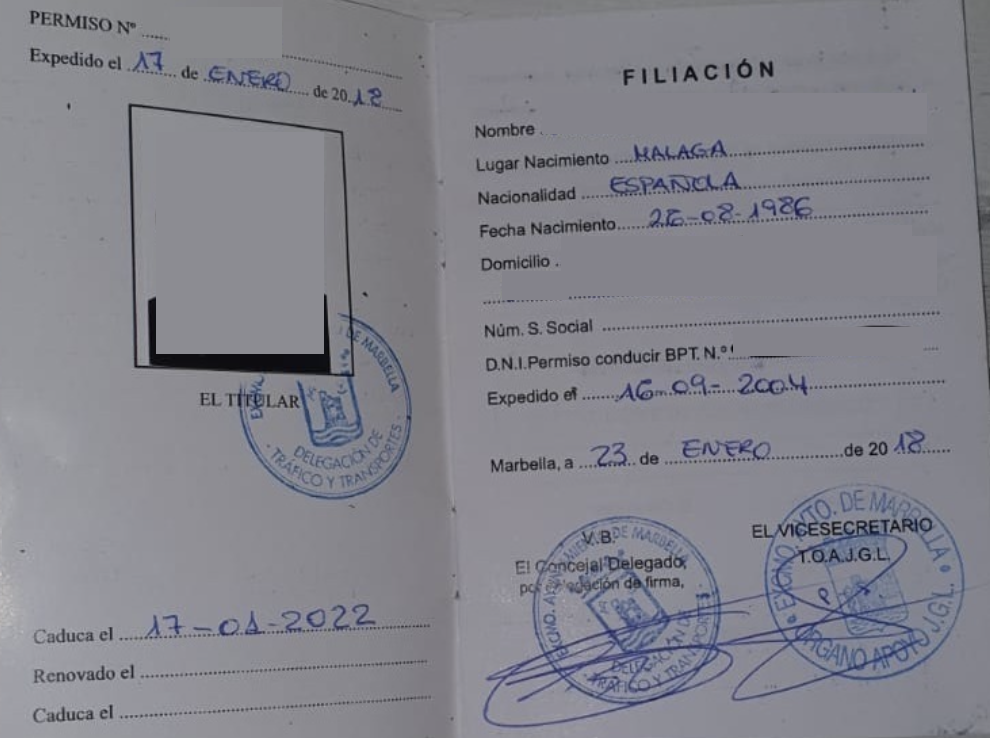 PERMISO Nº ......
Expedido el 17 de ENERO de 2018
EL TITULAR
EXCMO. DE MARBELLA
DELEGACIÓN DE
TRÁFICO Y TRANSPORTES
Caduca el 17-01-2022
Renovado el
Caduca el
FILIACIÓN
Nombre
Lugar Nacimiento MALAGA
Nacionalidad ESPAÑOLA
Fecha Nacimiento 26-08-1986
Domicilio
Núm. S. Social
D.N.I.Permiso conducir BPT. N.º
Expedido el 16-09-2004
Marbella, a 23 de ENERO de 2018
V.B.
El Concejal Delegado,
por delegación de firma,
EXCMO. AYUNTAMIENTO DE MARBELLA
DELEGACIÓN DE
TRÁFICO Y TRANSPORTES
EL VICESECRETARIO
T.O.A.J.G.L.
EXCMO. AYTO. DE MARBELLA
ORGANO APOYO J.G.L.